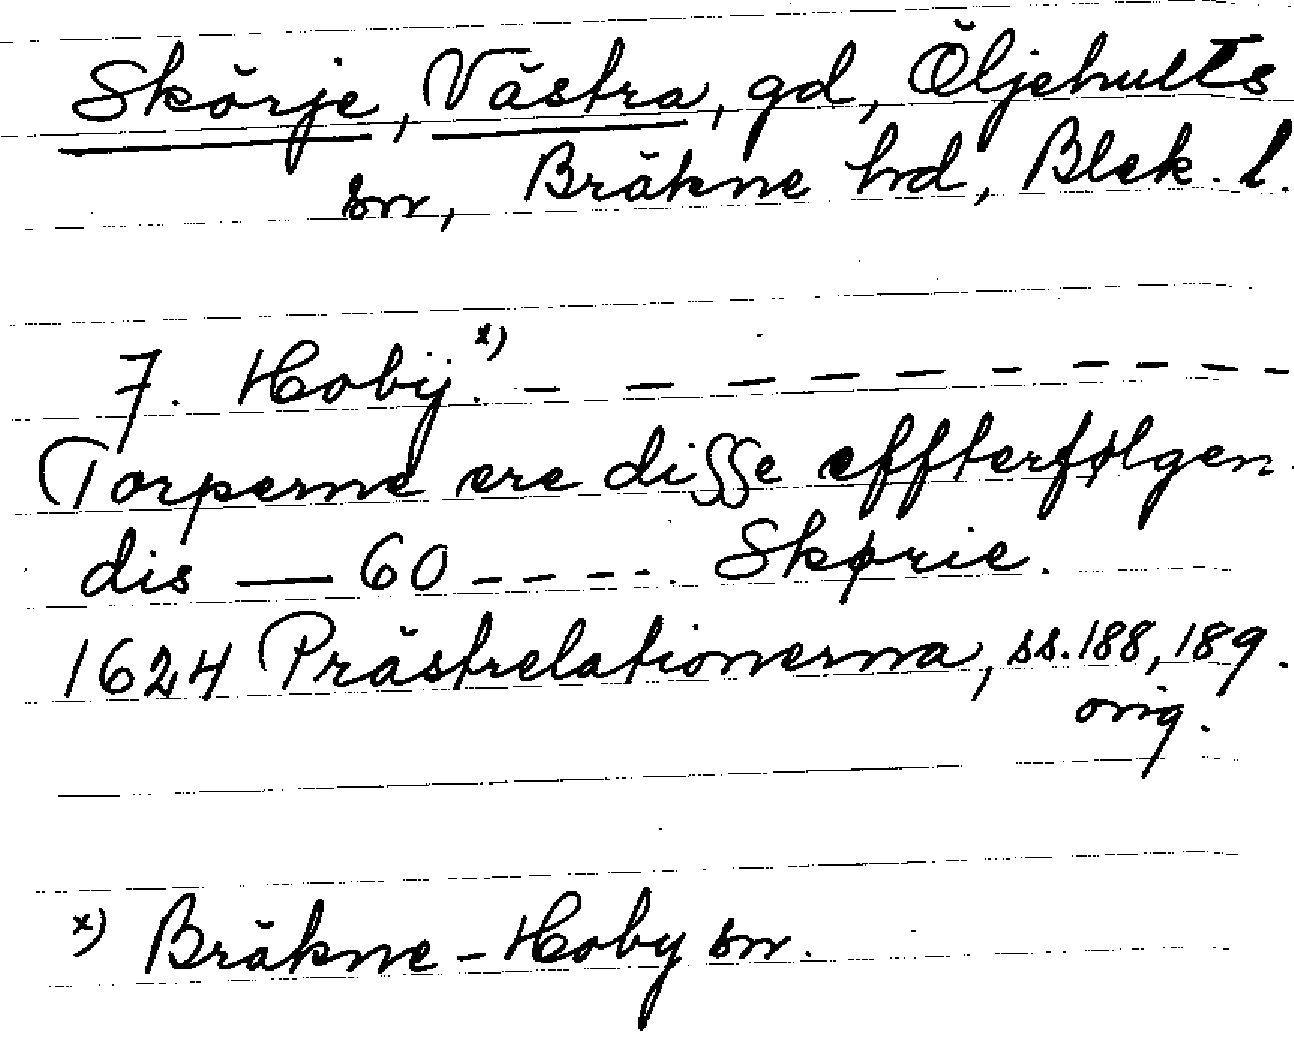 Skörje, Västra, gd, Öljehults
sn, Bräkne hd, Blek. l.
7. Hobÿ.x) - - - - - - - - - -
Torperne ere disse effterfølgen
dis — 60 - - - - . Skørie.
1624 Prästrelationerna, ss. 188, 189.
orig.
x) Bräkne-Hoby sn.